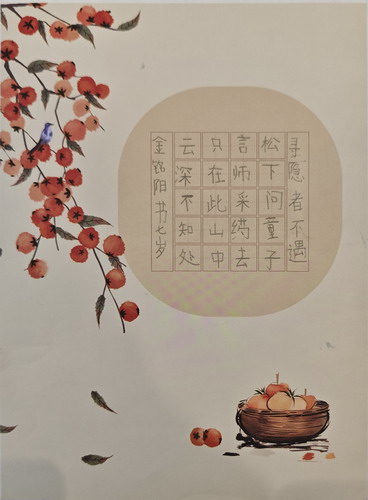 寻隐者不遇
松下问童子
言师采药去
只在此山中
云深不知处
金铭阳书七岁